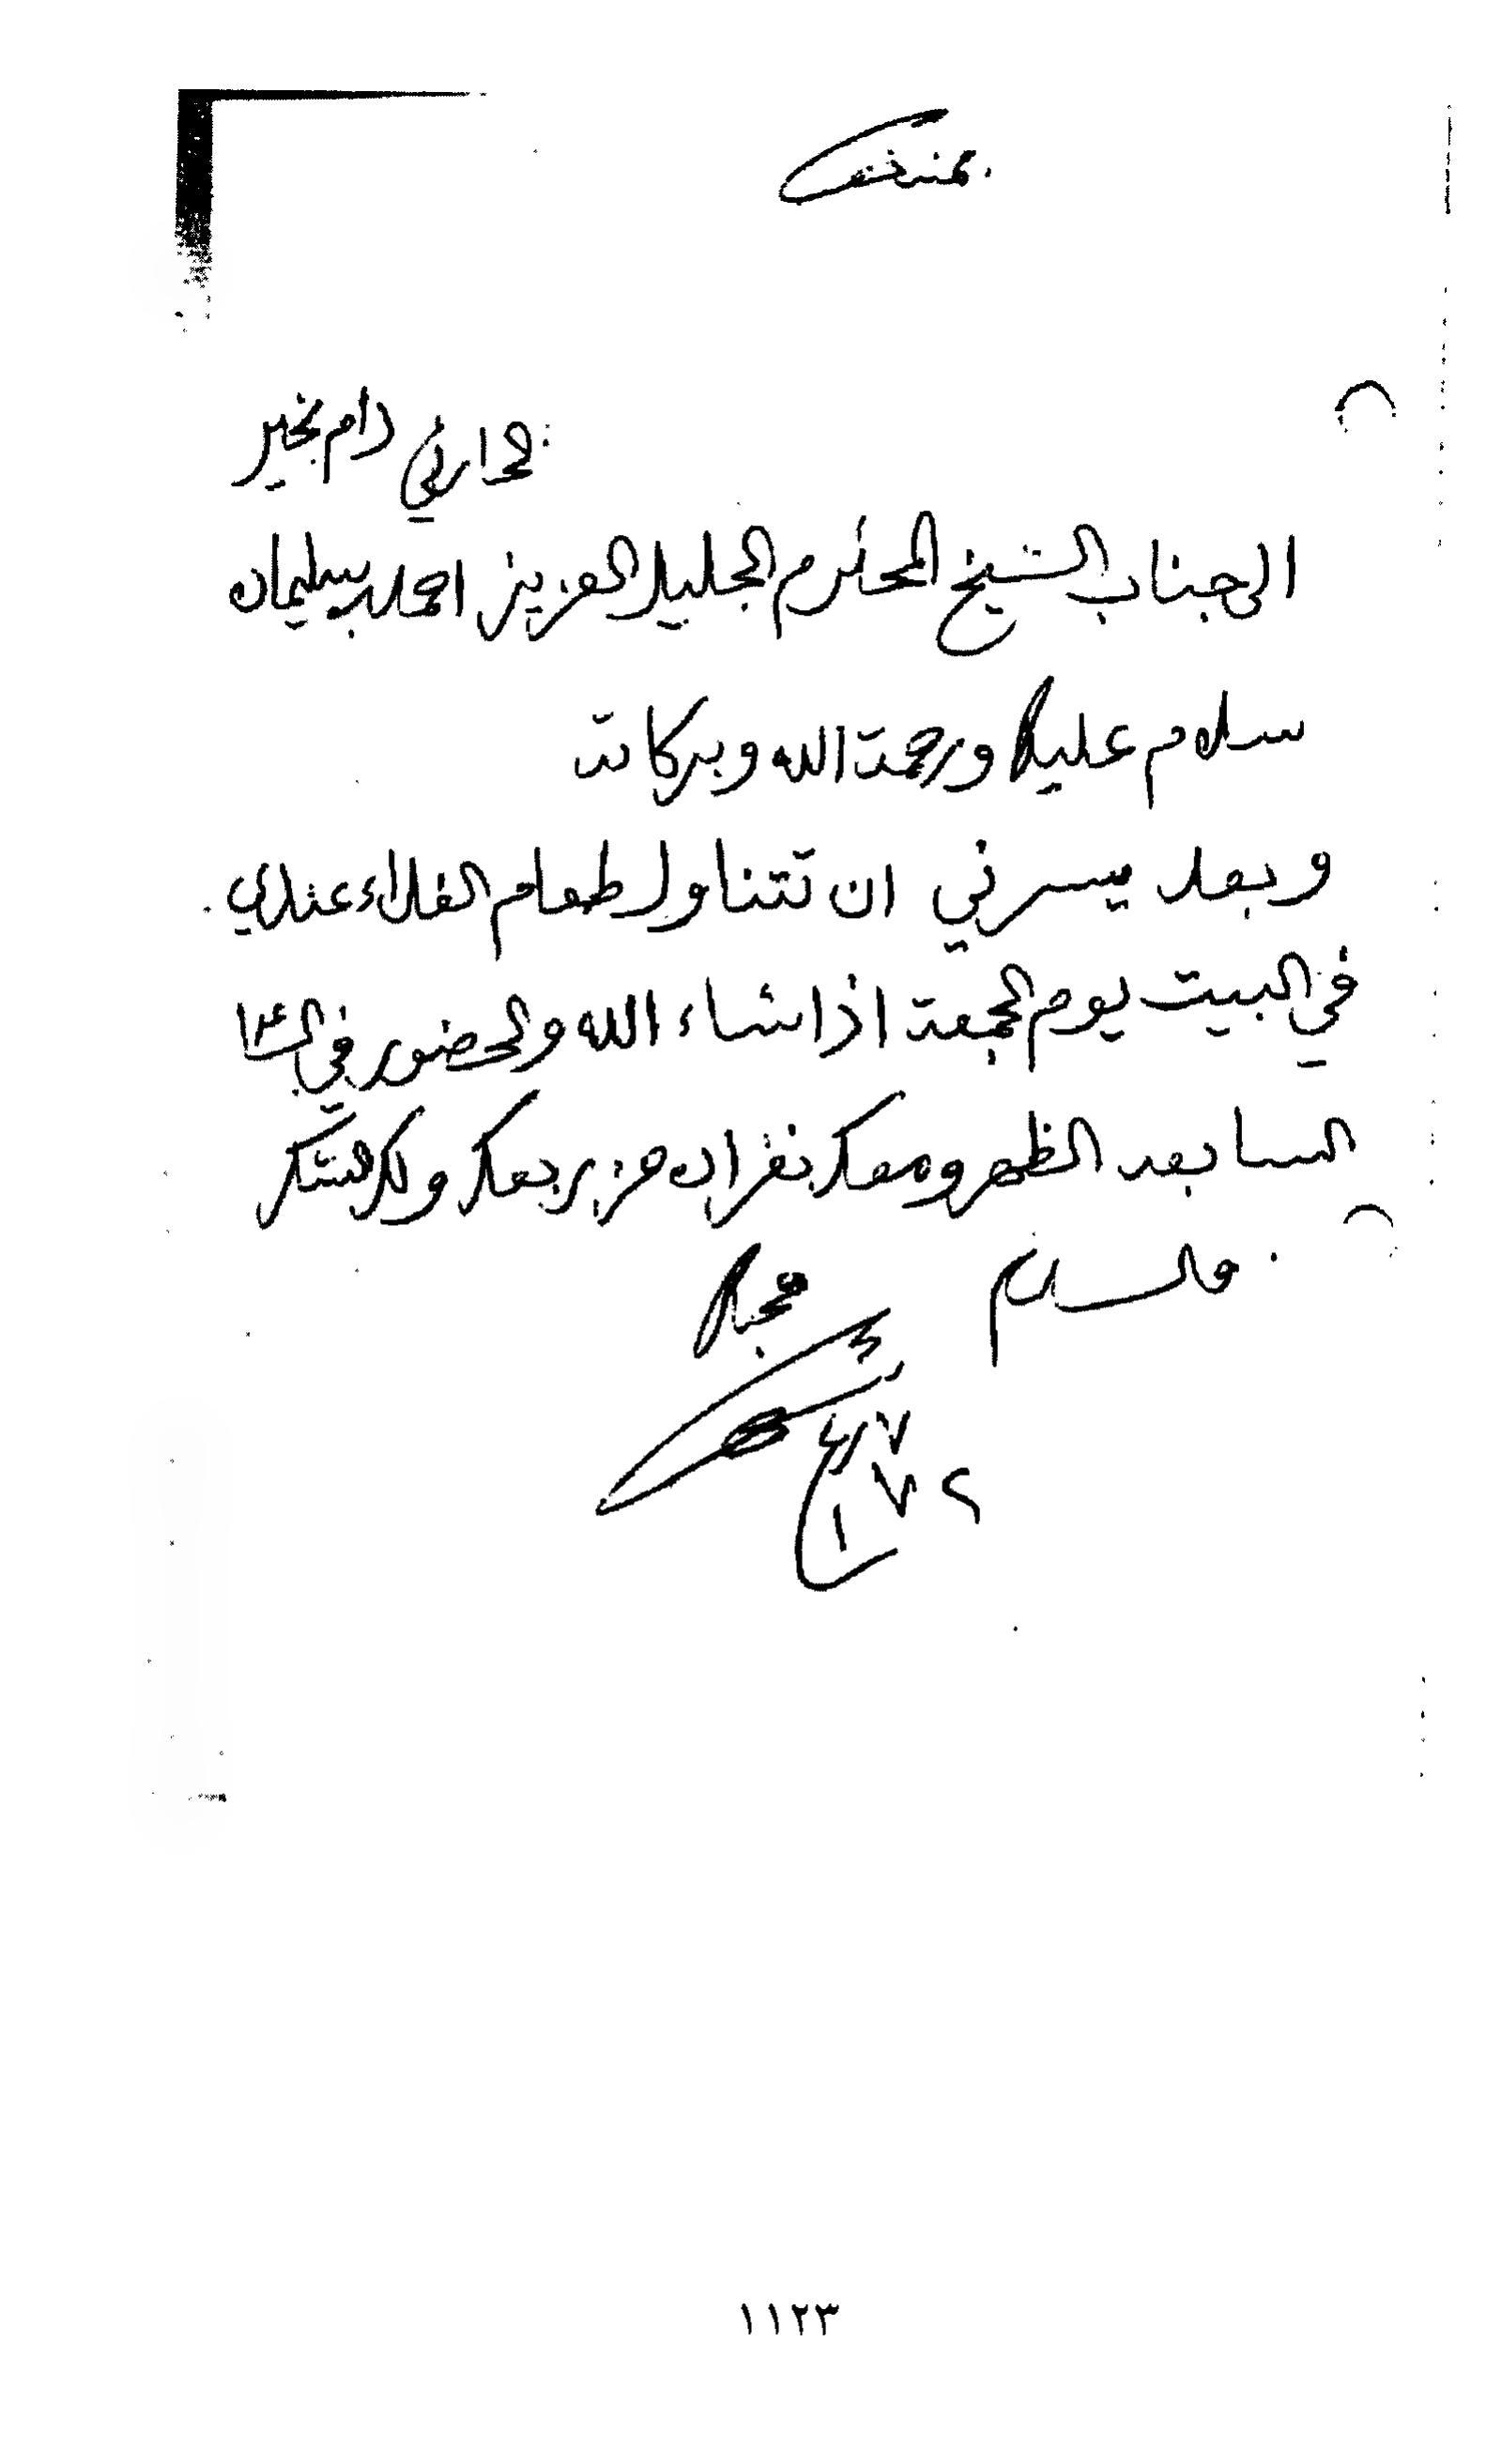 بمنه
دام بخير
الى جناب الشيخ المحترم الجليل العزيز احمد بن سليمان
سلام عليك ورحمة الله وبركاته
وبعد يسرني ان تتناول طعام الغداء عندي
في البيت يوم الجمعة اذا شاء الله والحضور في الساعة
بعد الظهر ومعك نفران من ربعك ولك الشكر
والسلام
محبك
١١٢٣